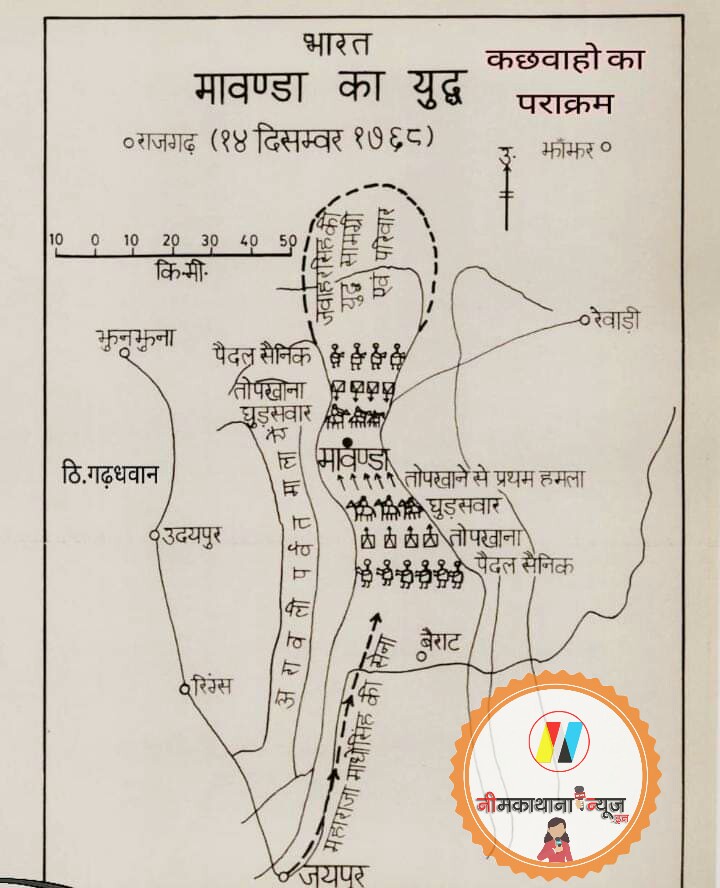 भारत
मावण्डा का युद्ध
कछवाहो का
पराक्रम
राजगढ़ (१४ दिसम्वर १७६८)
उ.
झाँझर
10 0 10 20 30 40 50
कि.मी.
जवाहरसिंह की
युद्ध सामग्री
एवं परिवार
रेवाड़ी
झुनझुना
पैदल सैनिक
तोपखाना
घुड़सवार
मावण्डा
ठि.गढ़धवान
तोपखाने से प्रथम हमला
घुड़सवार
उदयपुर
तोपखाना
पैदल सैनिक
अरावली पर्वत मालाएँ
बैराट
रिंग्स
महाराजा माधोसिंह की सेना
जयपुर
नीमकाथाना न्यूज